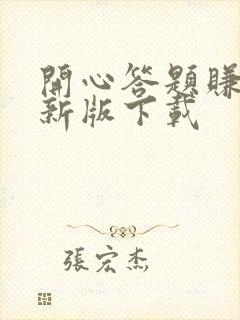 開心答題賺
新版下載
張宏杰